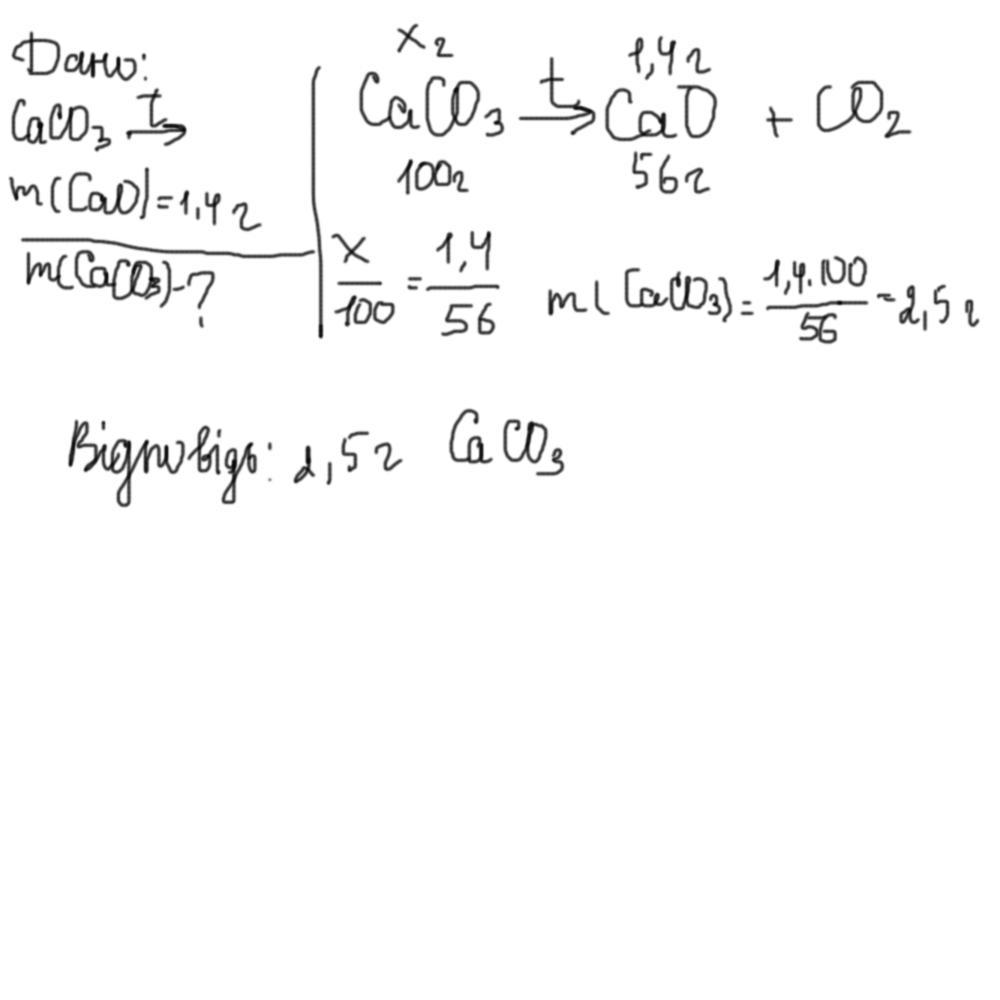 Дано:
CaCO₃ t→
m(CaO)=1,4 г
m(CaCO₃)-?
x г 1,4 г
CaCO₃ t→ CaO + CO₂
100 г 56 г
x/100 = 1,4/56 m(CaCO₃) = 1,4·100/56 = 2,5 г
Відповідь: 2,5 г CaCO₃